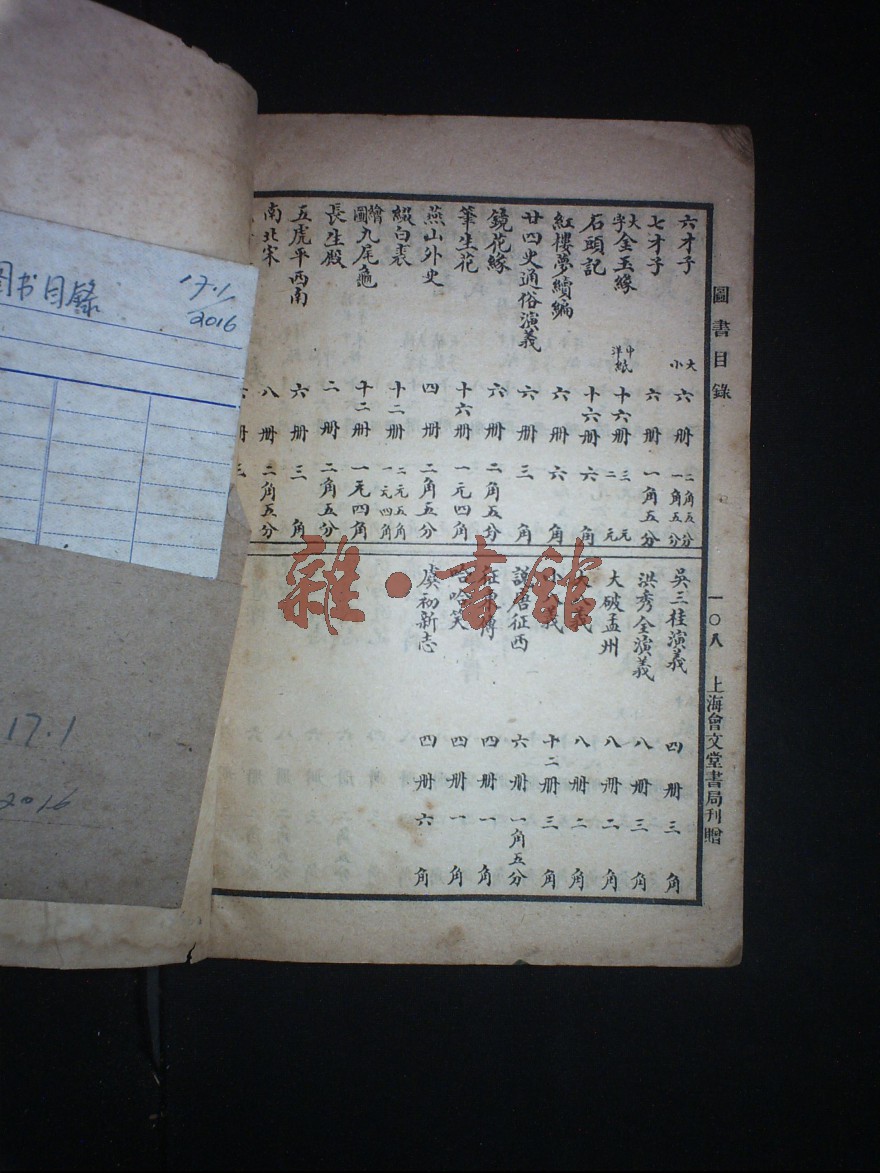 圖書目錄
一〇八
上海會文堂書局刊贈
六才子 大小 六册 二角五分 一角五分
七才子 六册 一角五分
大字金玉緣 中洋紙 十六册 三元 二元
石頭記 十六册 六角
紅樓夢續編 六册 六角
廿四史通俗演義 六册 三角
鏡花緣 六册 二角五分
筆生花 十六册 一元四角
燕山外史 四册 二角五分
綴白裘 十二册 二元五角 一元四角
繪圖九尾龜 十二册 一元四角
長生殿 二册 二角五分
五虎平西南 六册 三角
南北宋 八册 二角五分
册 三
吳三桂演義 四册 三角
洪秀全演義 八册 三角
大破孟州 八册 二角
八册 二角
十二册 三角
說唐征西 六册 一角五分
四册 一角
哈哈笑 四册 一角
虞初新志 四册 六角
雜·書館
图书目錄
17.1
2016
17.1
2016